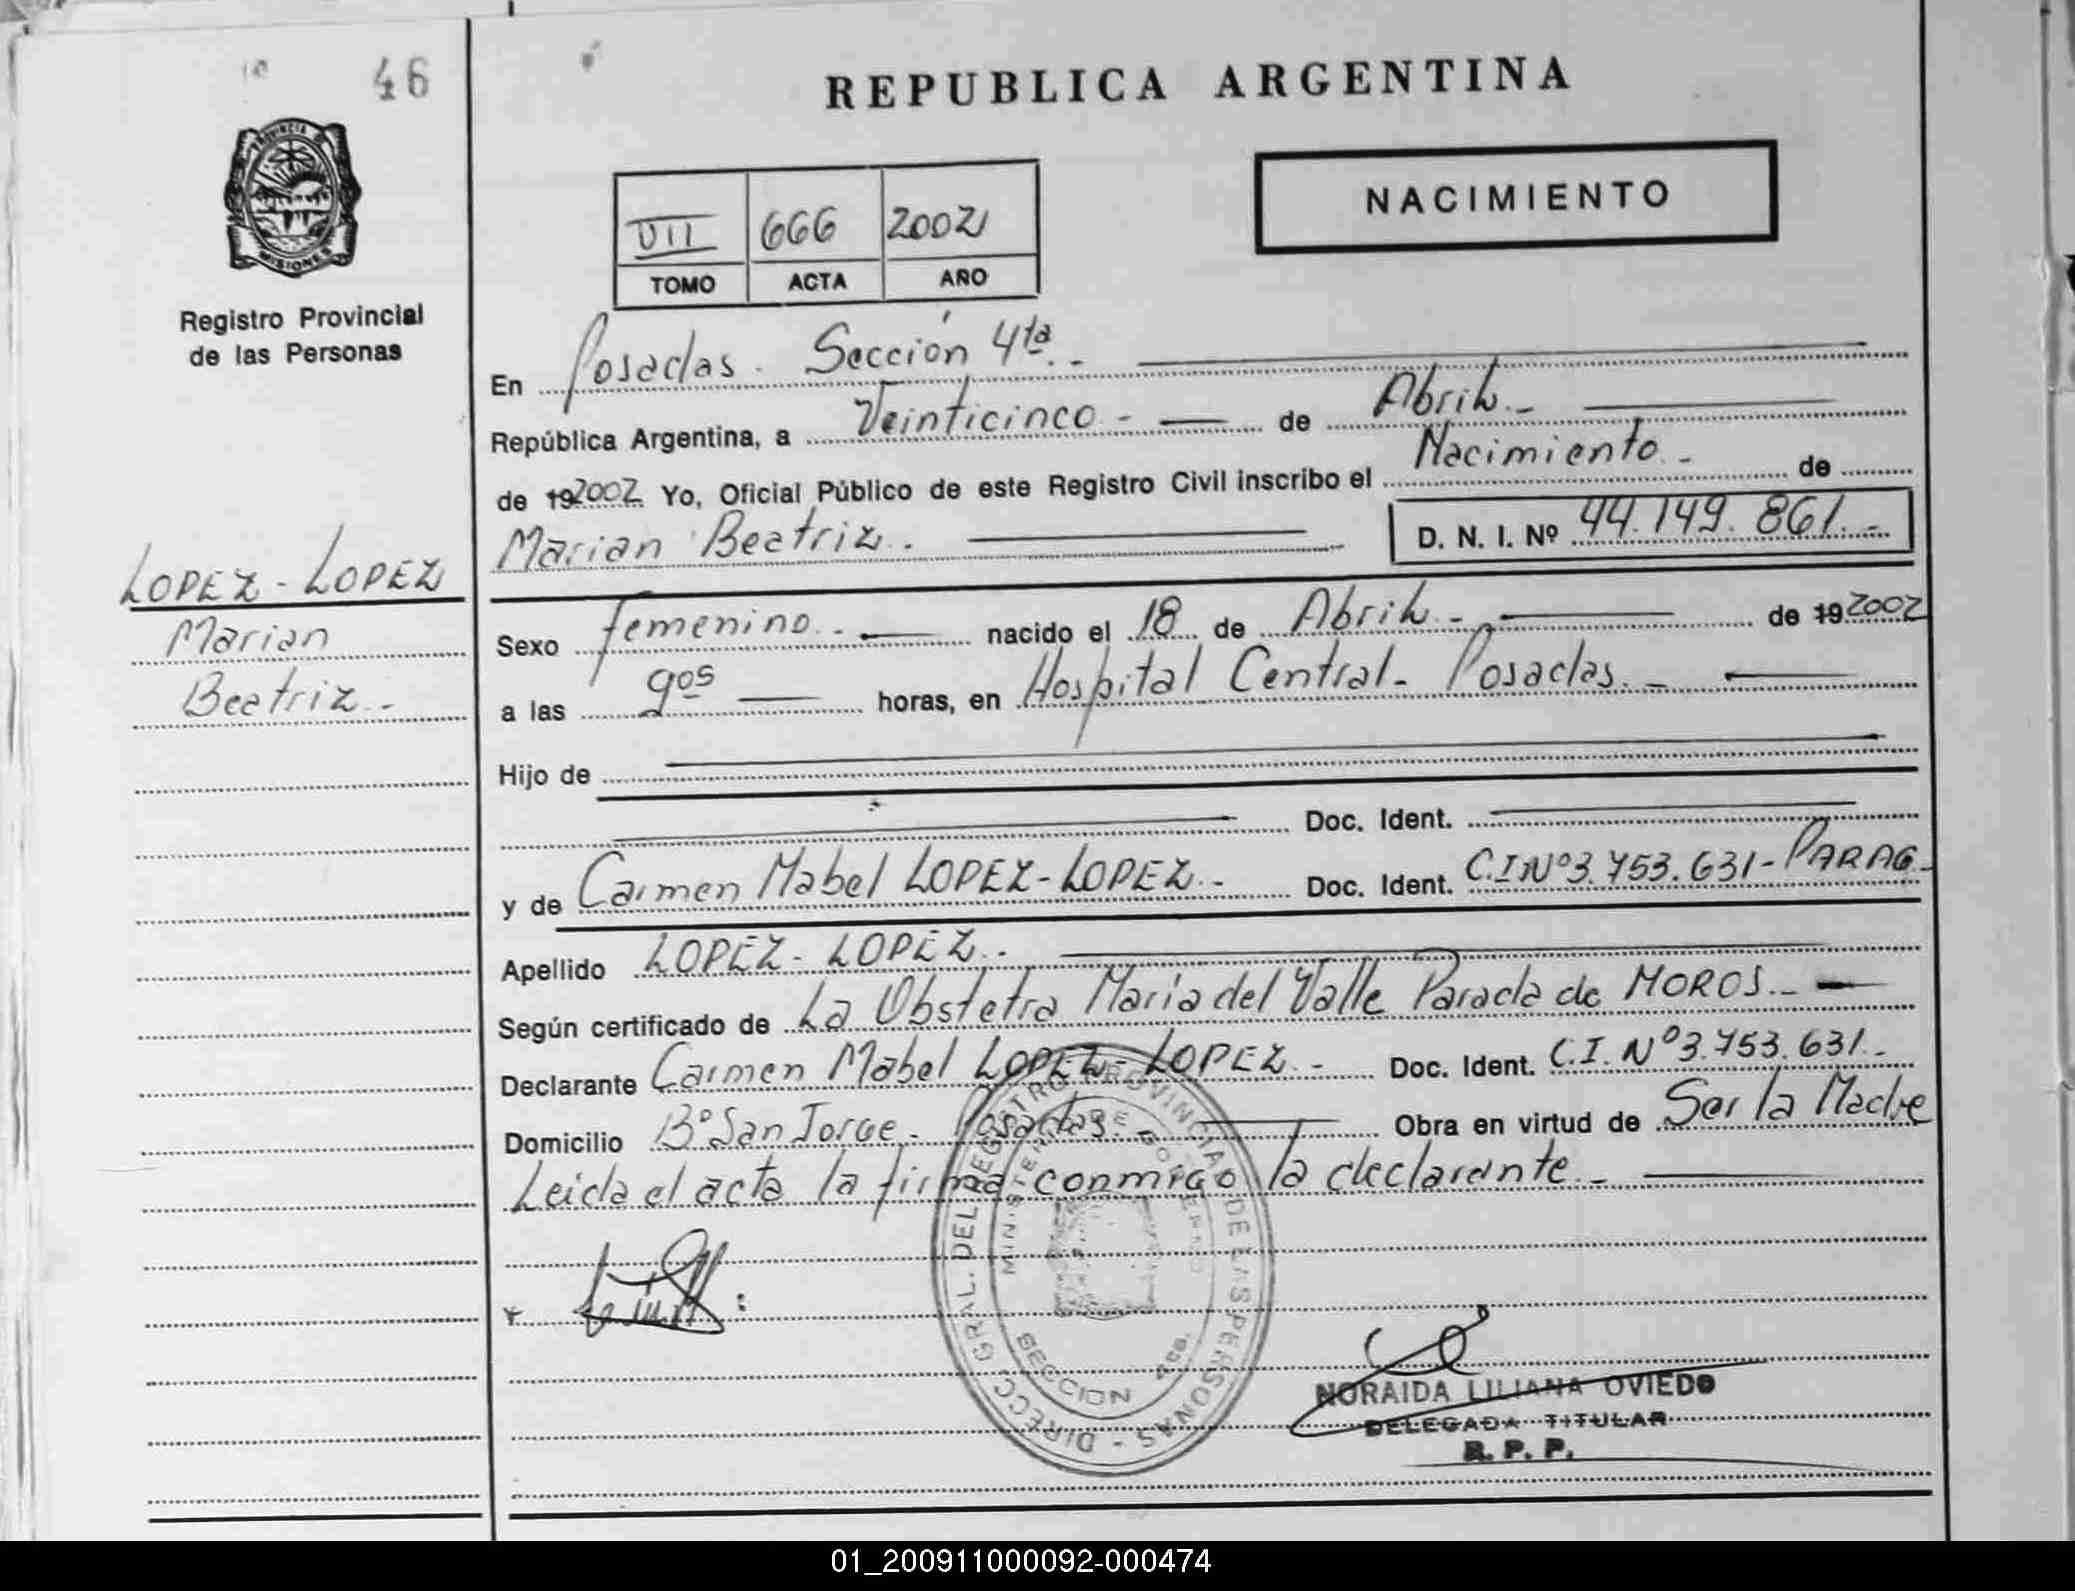 46
REPUBLICA ARGENTINA
PROVINCIA DE
MISIONES
Registro Provincial
de las Personas
NACIMIENTO
VII 666 2002
TOMO ACTA AÑO
En Posadas. Sección 4ta.-
República Argentina, a Veinticinco.- de Abril.-
de 192002 Yo, Oficial Público de este Registro Civil inscribo el Nacimiento.- de
Marian Beatriz.- D. N. I. Nº 44.149.861.-
LOPEZ-LOPEZ
Marian
Beatriz.-
Sexo femenino.- nacido el 18 de Abril.- de 192002
a las 9os horas, en Hospital Central- Posadas.-
Hijo de
Doc. Ident.
y de Carmen Mabel LOPEZ-LOPEZ.- Doc. Ident. C.I Nº3.753.631-PARAG-
Apellido LOPEZ-LOPEZ.-
Según certificado de La Obstetra Maria del Valle Parada de MOROS.-
Declarante Carmen Mabel LOPEZ-LOPEZ.- Doc. Ident. C.I. Nº3.753.631.-
Domicilio Bº San Jorge.- Posadas.- Obra en virtud de Ser la Madre
Leida el acta la firma conmigo la declarante.-
DIRECC GRAL. DEL REGISTRO PROVINCIAL DE LAS PERSONAS -
MINISTERIO DE GOBIERNO
SECCION
NORAIDA LILIANA OVIEDO
DELEGADA TITULAR
R. P. P.
01_200911000092-000474